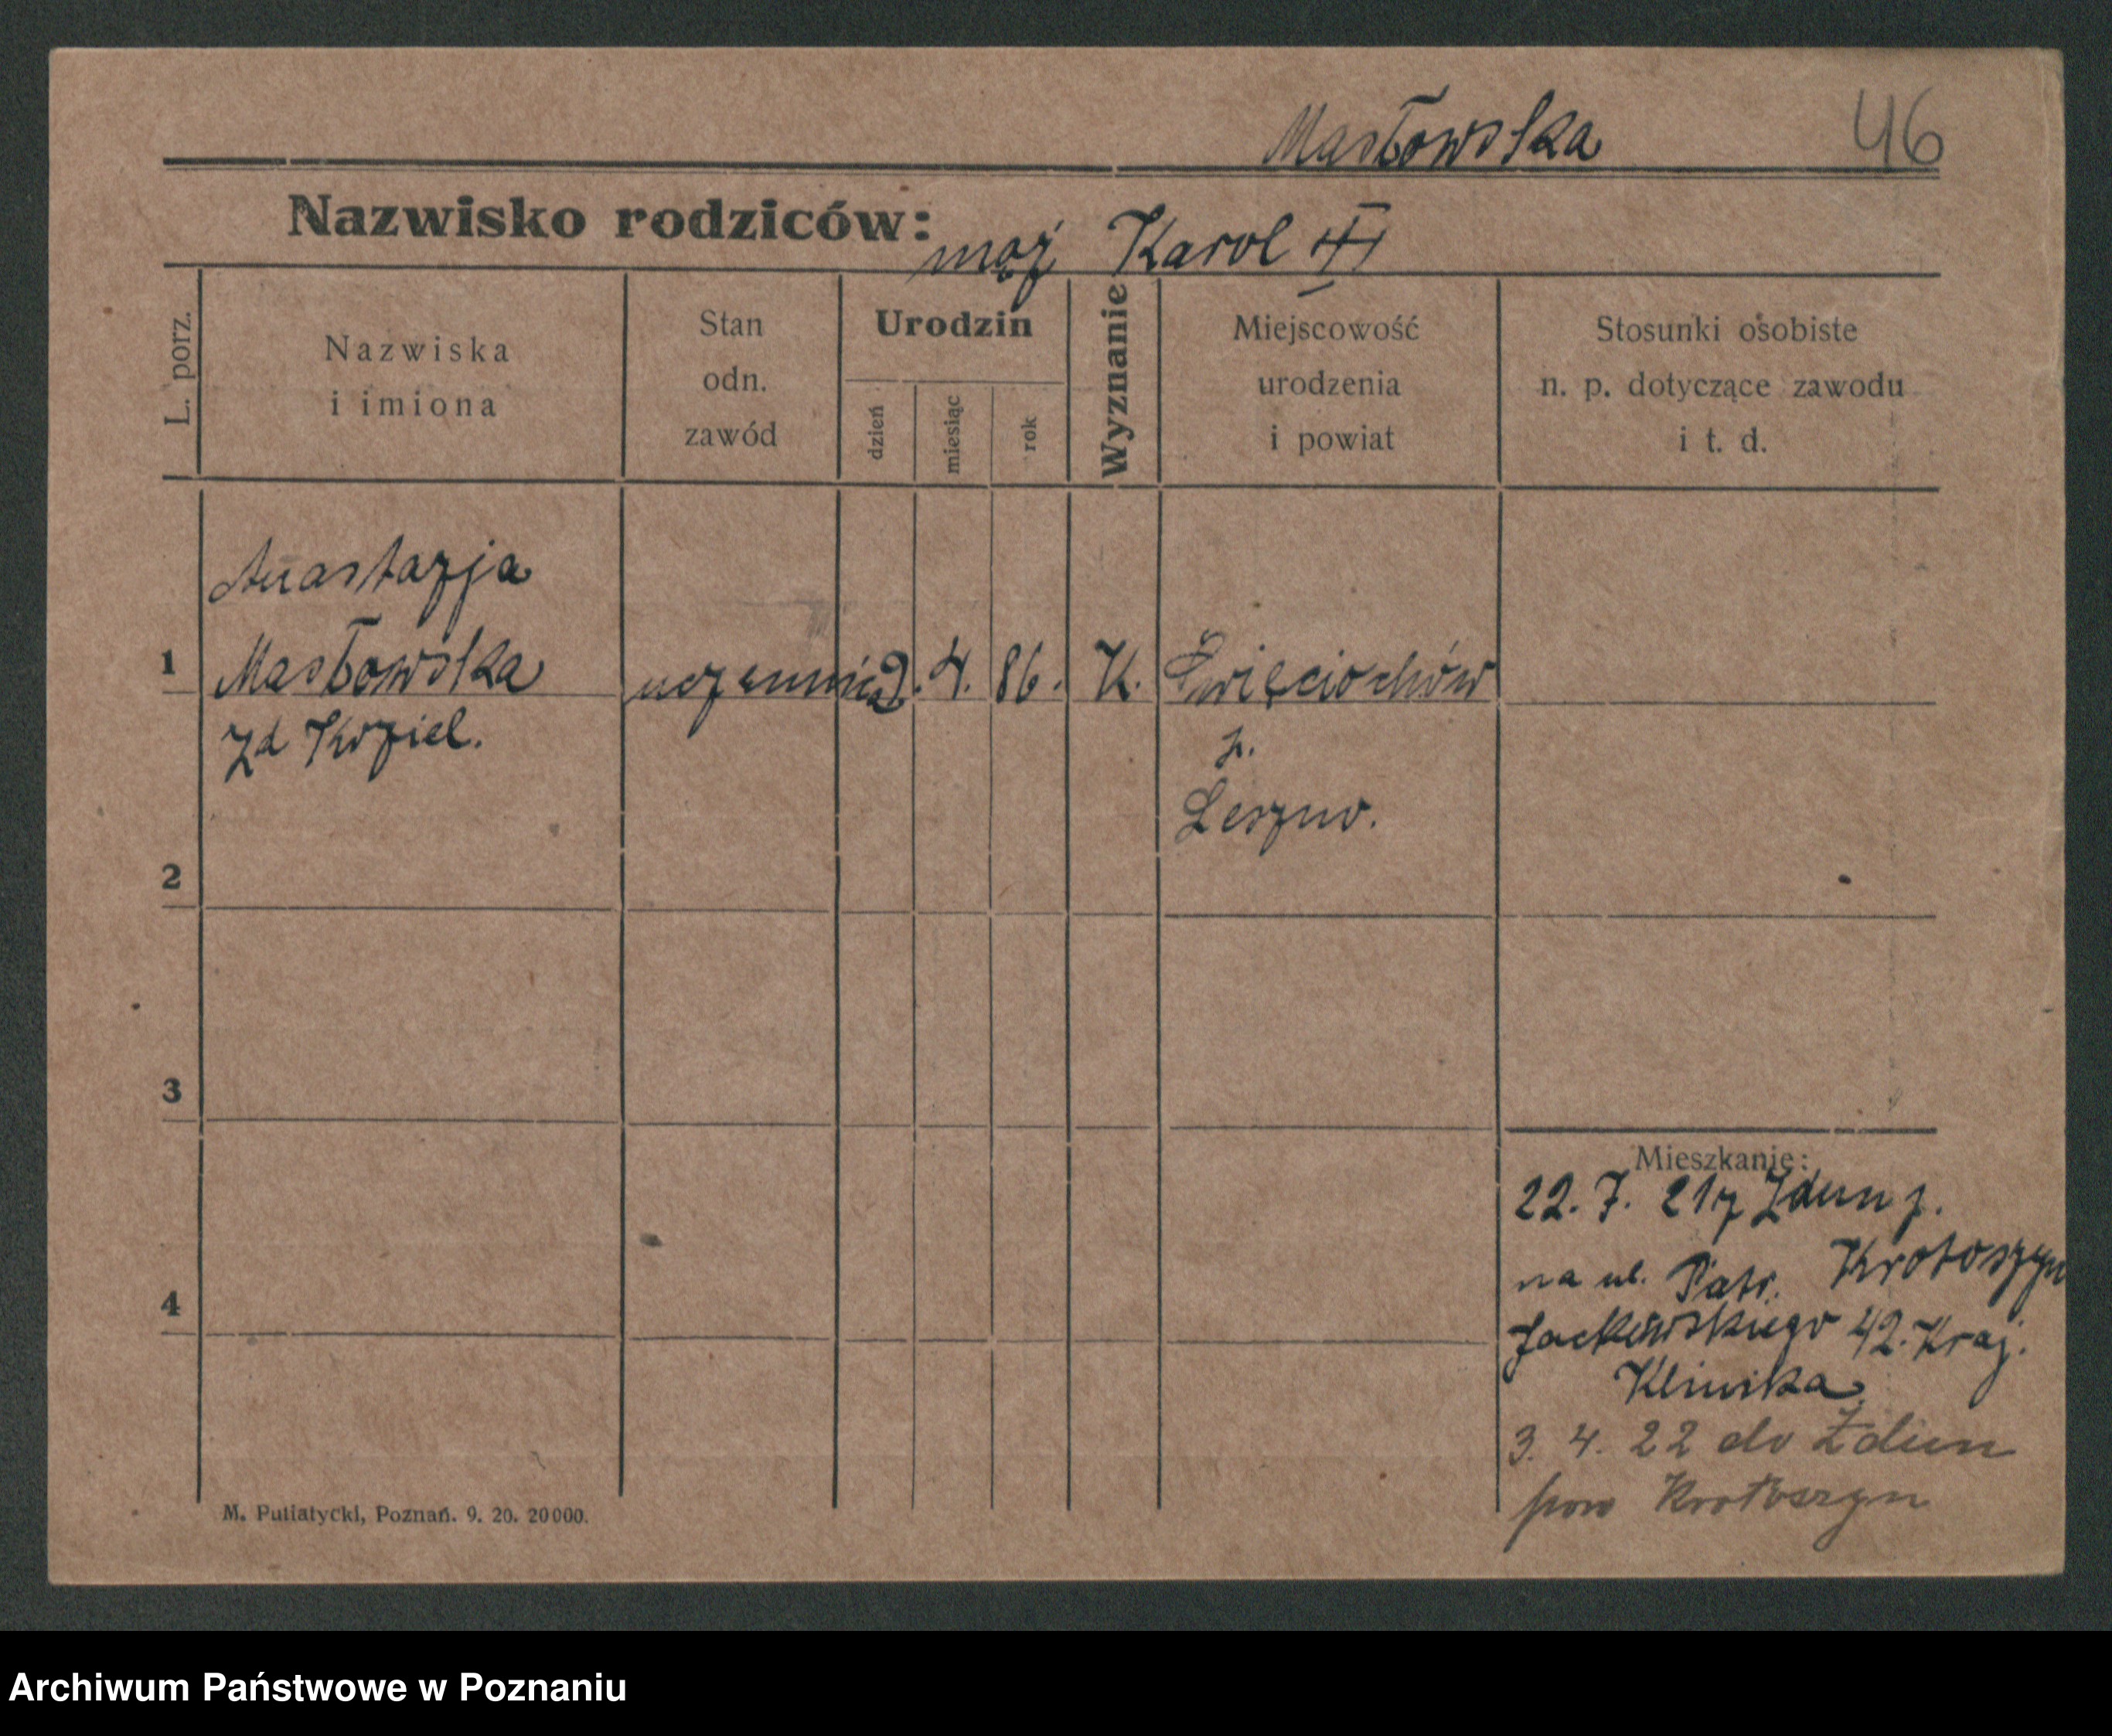 Masłowska 46
Nazwisko rodziców: mąż Karol
L. porz.
Nazwiska
i imiona
Stan
odn.
zawód
Urodzin
dzień
miesiąc
rok
Wyznanie
Miejscowość
urodzenia
i powiat
Stosunki osobiste
n. p. dotyczące zawodu
i t. d.
Anastazja
1 Masłowska uczennica 2. 4. 86. K. Święciochów
zd Koziel. p.
Leszno.
2
3
4
Mieszkanie:
22. 7. 21 z Zdun p.
Krotoszyn
na ul. Patr.
Jackowskiego 42. Kraj.
Klinika
3. 4. 22 do Zdun
pow Krotoszyn
M. Putiatycki, Poznań. 9. 20. 20000.
Archiwum Państwowe w Poznaniu